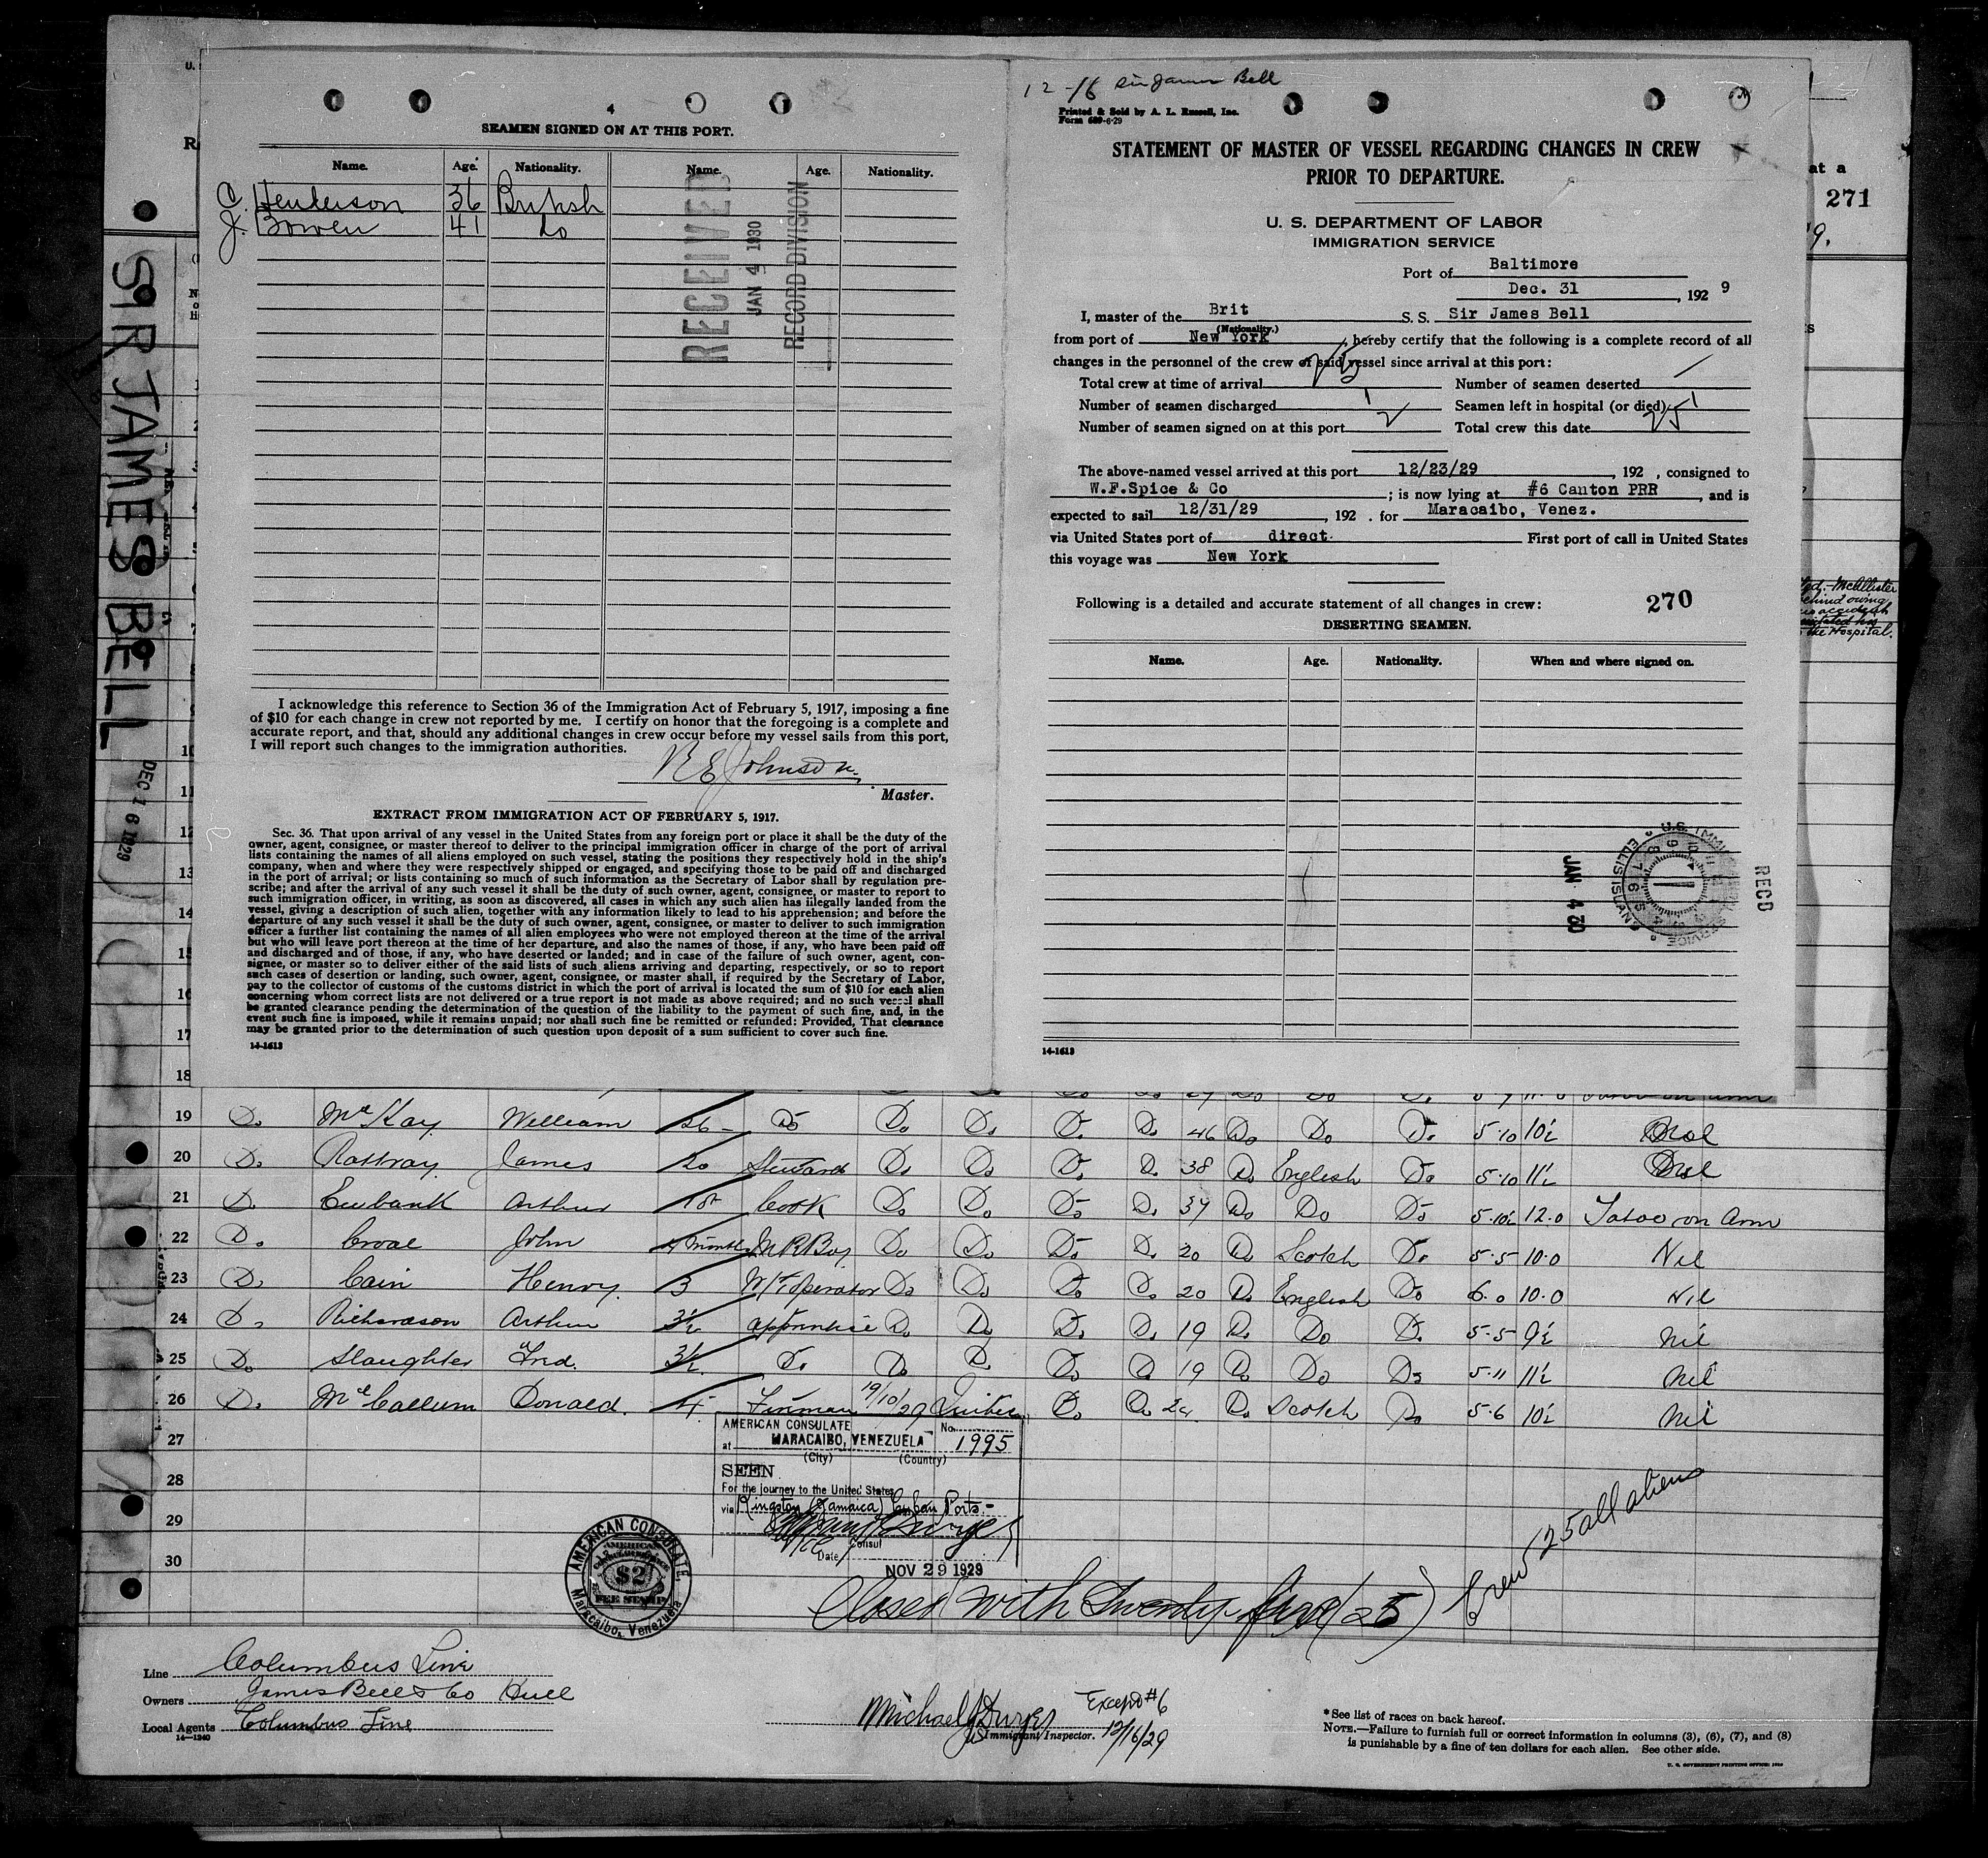 4
SEAMEN SIGNED ON AT THIS PORT.
Name. Age. Nationality. Name. Age. Nationality.
C. Henderson 36 British
J. Bowen 41 Do
RECEIVED
JAN 4 1930
RECORD DIVISION
I acknowledge this reference to Section 36 of the Immigration Act of February 5, 1917, imposing a fine
of $10 for each change in crew not reported by me. I certify on honor that the foregoing is a complete and
accurate report, and that, should any additional changes in crew occur before my vessel sails from this port,
I will report such changes to the immigration authorities.
R E Johnson
Master.
EXTRACT FROM IMMIGRATION ACT OF FEBRUARY 5, 1917.
Sec. 36. That upon arrival of any vessel in the United States from any foreign port or place it shall be the duty of the
owner, agent, consignee, or master thereof to deliver to the principal immigration officer in charge of the port of arrival
lists containing the names of all aliens employed on such vessel, stating the positions they respectively hold in the ship's
company, when and where they were respectively shipped or engaged, and specifying those to be paid off and discharged
in the port of arrival; or lists containing so much of such information as the Secretary of Labor shall by regulation pre-
scribe; and after the arrival of any such vessel it shall be the duty of such owner, agent, consignee, or master to report to
such immigration officer, in writing, as soon as discovered, all cases in which any such alien has illegally landed from the
vessel, giving a description of such alien, together with any information likely to lead to his apprehension; and before the
departure of any such vessel it shall be the duty of such owner, agent, consignee, or master to deliver to such immigration
officer a further list containing the names of all alien employees who were not employed thereon at the time of the arrival
but who will leave port thereon at the time of her departure, and also the names of those, if any, who have been paid off
and discharged and of those, if any, who have deserted or landed; and in case of the failure of such owner, agent, con-
signee, or master so to deliver either of the said lists of such aliens arriving and departing, respectively, or so to report
such cases of desertion or landing, such owner, agent, consignee, or master shall, if required by the Secretary of Labor,
pay to the collector of customs of the customs district in which the port of arrival is located the sum of $10 for each alien
concerning whom correct lists are not delivered or a true report is not made as above required; and no such vessel shall
be granted clearance pending the determination of the question of the liability to the payment of such fine, and, in the
event such fine is imposed, while it remains unpaid; nor shall such fine be remitted or refunded: Provided, That clearance
may be granted prior to the determination of such question upon deposit of a sum sufficient to cover such fine.
14-1613
12-16 Sir James Bell
Printed & Sold by A. L. Russell, Inc.
Form 689-6-29
STATEMENT OF MASTER OF VESSEL REGARDING CHANGES IN CREW
PRIOR TO DEPARTURE.
U. S. DEPARTMENT OF LABOR
IMMIGRATION SERVICE
Port of Baltimore
Dec. 31, 1929
I, master of the Brit S. S. Sir James Bell
(Nationality.)
from port of New York, hereby certify that the following is a complete record of all
changes in the personnel of the crew of said vessel since arrival at this port:
Total crew at time of arrival 25 Number of seamen deserted /
Number of seamen discharged 1 Seamen left in hospital (or died) 1
Number of seamen signed on at this port 2 Total crew this date 25
The above-named vessel arrived at this port 12/23/29, 192 , consigned to
W.F.Spice & Co; is now lying at #6 Canton PRR, and is
expected to sail 12/31/29, 192 . for Maracaibo, Venez.
via United States port of direct. First port of call in United States
this voyage was New York
Following is a detailed and accurate statement of all changes in crew: 270
DESERTING SEAMEN.
Name. Age. Nationality. When and where signed on.
U.S. IMMIGRATION SERVICE ELLIS ISLAND
JAN 4 30
RECD
14-1613
at a
271
McAllister
behind owing
accident
the Hospital.
SIR JAMES BELL
DEC 16 1929
10
11
12
13
14
15
16
17
18
19 Do. McKay William 26 Do Do Do Do Do 46 Do Do Do 5.10 10½ Nil
20 Do. Rattray James 20 Steward Do Do Do Do 38 Do English Do 5.10 11½ Nil
21 Do. Eubank Arthur Cook Do Do Do Do 37 Do Do Do 5.10½ 12.0 Tatoo on Arm
22 Do. Croal John 4 months M R Boy Do Do Do Do 20 Do Scotch Do 5.5 10.0 Nil
23 Do. Cain Henry. 3 W/T operator Do Do Do Do 20 Do English Do 6.0 10.0 Nil
24 Do. Richardson Arthur 3½ apprentice Do Do Do Do 19 Do Do Do 5.5 9½ Nil
25 Do. Slaughter Fred. 3½ Do Do Do Do Do 19 Do Do Do 5.11 11½ Nil
26 Do. McCallum Donald. 4 Fireman 19/10/29 Quebec Do Do 24 Do Scotch Do 5.6 10½ Nil
27
28
29
30
AMERICAN CONSULATE
at MARACAIBO, VENEZUELA No. 1995
(City) (Country)
SEEN
For the journey to the United States
via Kingston (Jamaica) Cuban Ports-
Vice Consul
Date NOV 29 1929
AMERICAN CONSULATE
$2
FEE STAMP
Maracaibo, Venezuela
Closed with twenty-five (25)
Crew 25 all aliens
Line Columbus Line
Owners James Bell & Co Hull
Local Agents Columbus Line
14-1240
Michael J Dwyer Except #6
Immigrant Inspector. 12/16/29
*See list of races on back hereof.
NOTE.—Failure to furnish full or correct information in columns (3), (6), (7), and (8)
is punishable by a fine of ten dollars for each alien. See other side.
U. S. GOVERNMENT PRINTING OFFICE